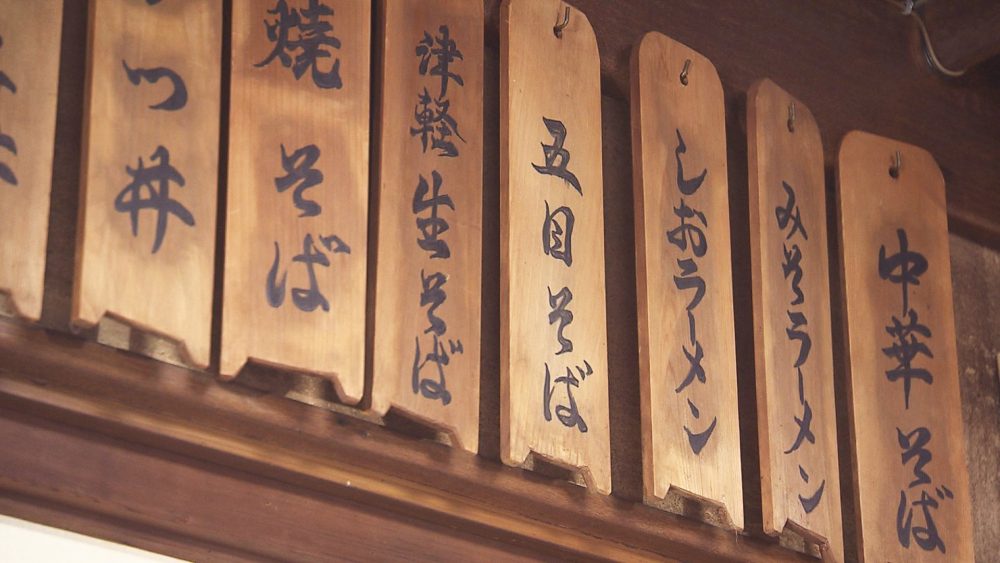 中華そば
みそラーメン
しおラーメン
五目そば
津軽生そば
焼そば
つ丼